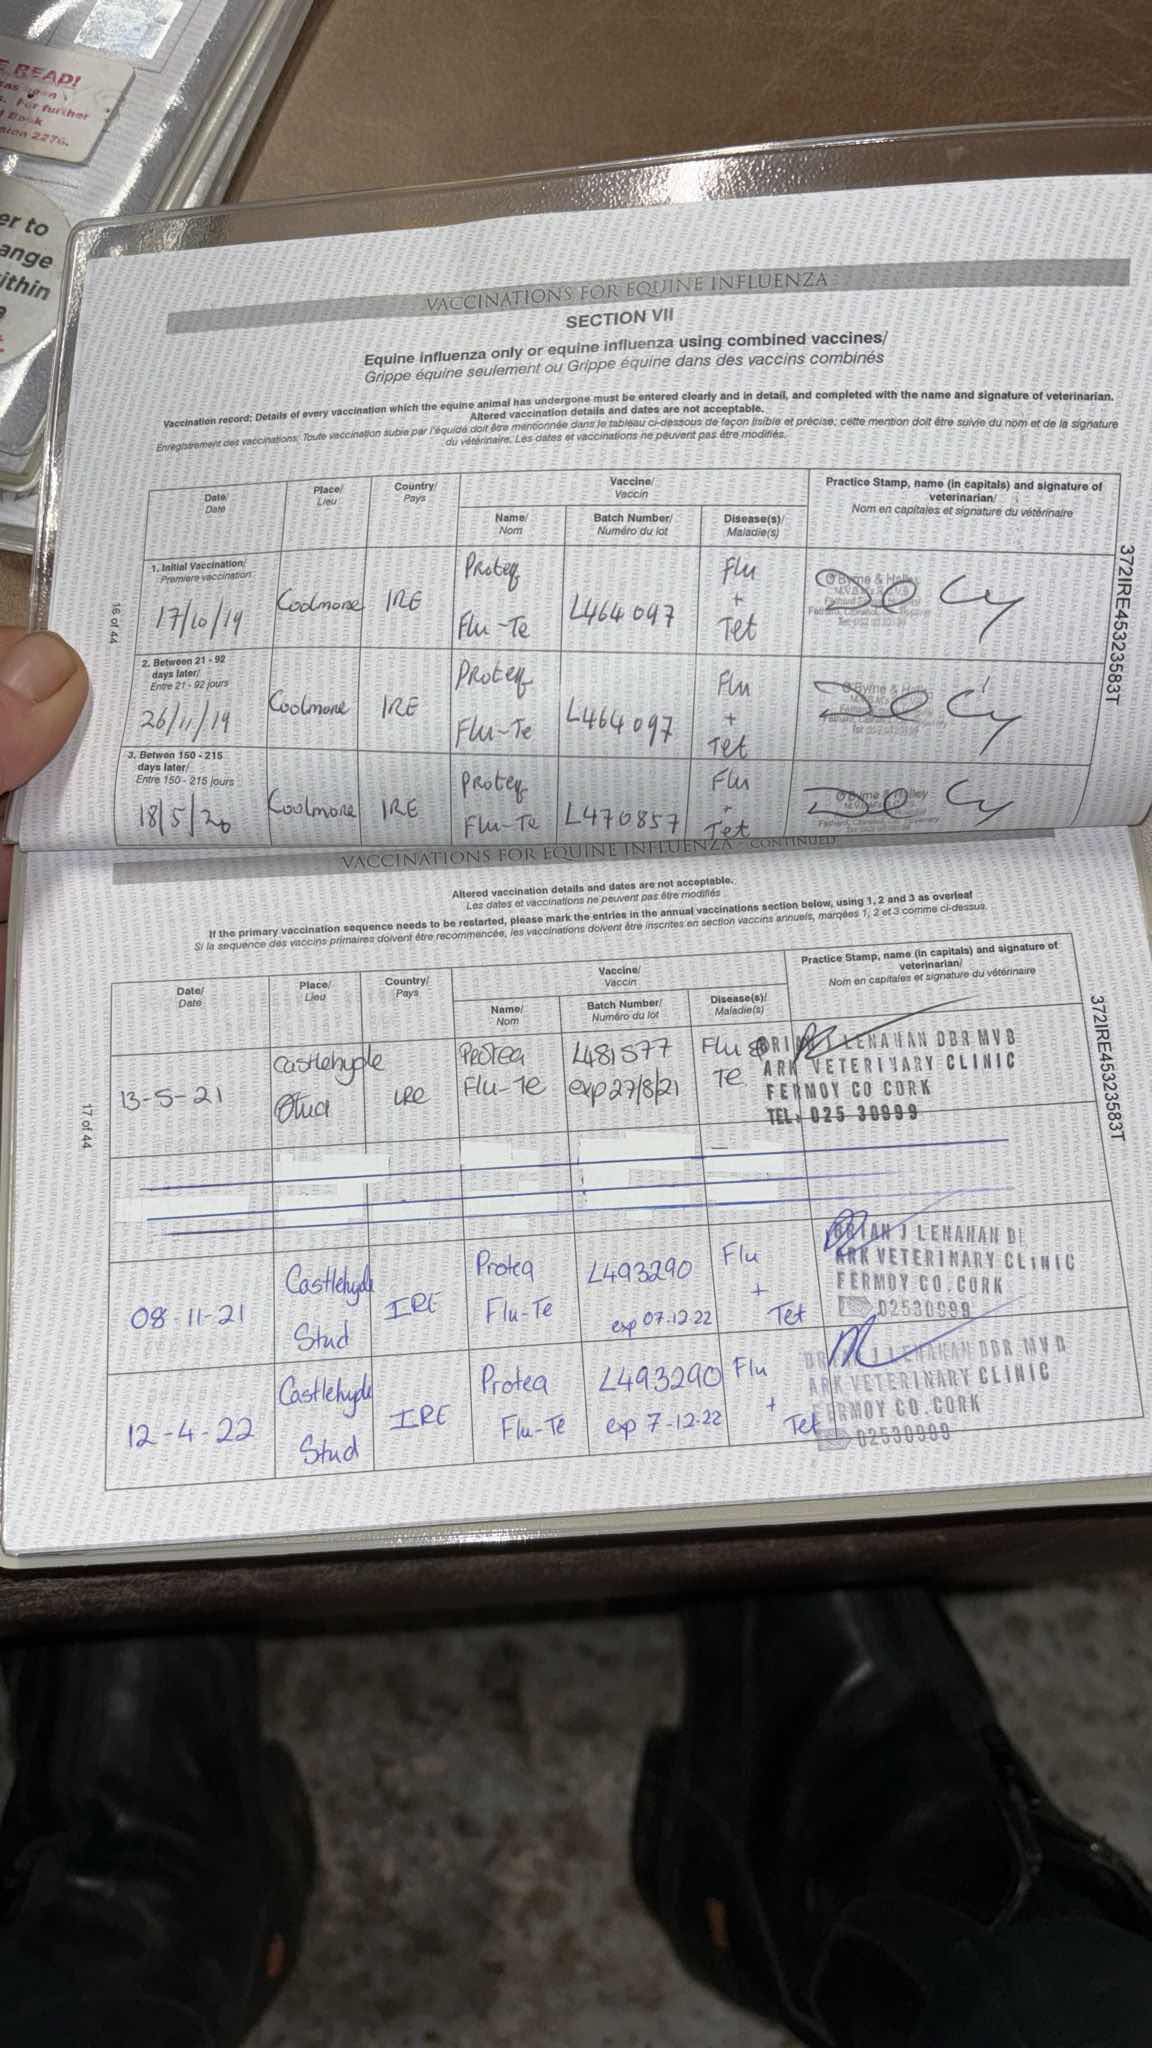 E READ!
For further
Book
2276.
er to
ange
ithin
VACCINATIONS FOR EQUINE INFLUENZA
SECTION VII
Equine influenza only or equine influenza using combined vaccines/
Grippe équine seulement ou Grippe équine dans des vaccins combinés
Vaccination record: Details of every vaccination which the equine animal has undergone must be entered clearly and in detail, and completed with the name and signature of veterinarian.
Altered vaccination details and dates are not acceptable.
Enregistrement des vaccinations: Toute vaccination subie par l'équidé doit être mentionnée dans le tableau ci-dessous de façon lisible et précise; cette mention doit être suivie du nom et de la signature
du vétérinaire. Les dates et vaccinations ne peuvent pas être modifiés.
Date/
Date
Place/
Lieu
Country/
Pays
Vaccine/
Vaccin
Name/
Nom
Batch Number/
Numéro du lot
Disease(s)/
Maladie(s)
Practice Stamp, name (in capitals) and signature of
veterinarian/
Nom en capitales et signature du vétérinaire
1. Initial Vaccination/
Premiere vaccination
17/10/19
Coolmore
IRE
Proteq
Flu-Te
L464097
Flu
+
Tet
O'Byrne & Halley
2. Between 21 - 92
days later/
Entre 21 - 92 jours
26/11/19
Coolmore
IRE
Proteq
Flu-Te
L464097
Flu
+
Tet
O'Byrne & Halley
3. Betwen 150 - 215
days later/
Entre 150 - 215 jours
18/5/20
Coolmore
IRE
Proteq
Flu-Te
L470857
Flu
+
Tet
O'Byrne & Halley
16 of 44
372IRE45323583T
VACCINATIONS FOR EQUINE INFLUENZA - CONTINUED
Altered vaccination details and dates are not acceptable.
Les dates et vaccinations ne peuvent pas être modifiés
If the primary vaccination sequence needs to be restarted, please mark the entries in the annual vaccinations section below, using 1, 2 and 3 as overleaf
Si la sequence des vaccins primaires doivent être recommencée, les vaccinations doivent être inscrites en section vaccins annuels, marqées 1, 2 et 3 comme ci-dessus.
Date/
Date
Place/
Lieu
Country/
Pays
Vaccine/
Vaccin
Name/
Nom
Batch Number/
Numéro du lot
Disease(s)/
Maladie(s)
Practice Stamp, name (in capitals) and signature of
veterinarian/
Nom en capitales et signature du vétérinaire
13-5-21
Castlehyde
Stud
IRE
Protea
Flu-Te
L481577
exp 27/8/21
Flu &
Te
BRIAN J LENAHAN DBR MVB
ARK VETERINARY CLINIC
FERMOY CO CORK
TEL: 025 30999
08-11-21
Castlehyde
Stud
IRE
Protea
Flu-Te
L493290
exp 07.12.22
Flu
+
Tet
BRIAN J LENAHAN D
ARK VETERINARY CLINIC
FERMOY CO. CORK
02530999
12-4-22
Castlehyde
Stud
IRE
Protea
Flu-Te
L493290
exp 7-12-22
Flu
+
Tet
BRIAN J LENAHAN DBR MVB
ARK VETERINARY CLINIC
FERMOY CO. CORK
02530999
17 of 44
372IRE45323583T